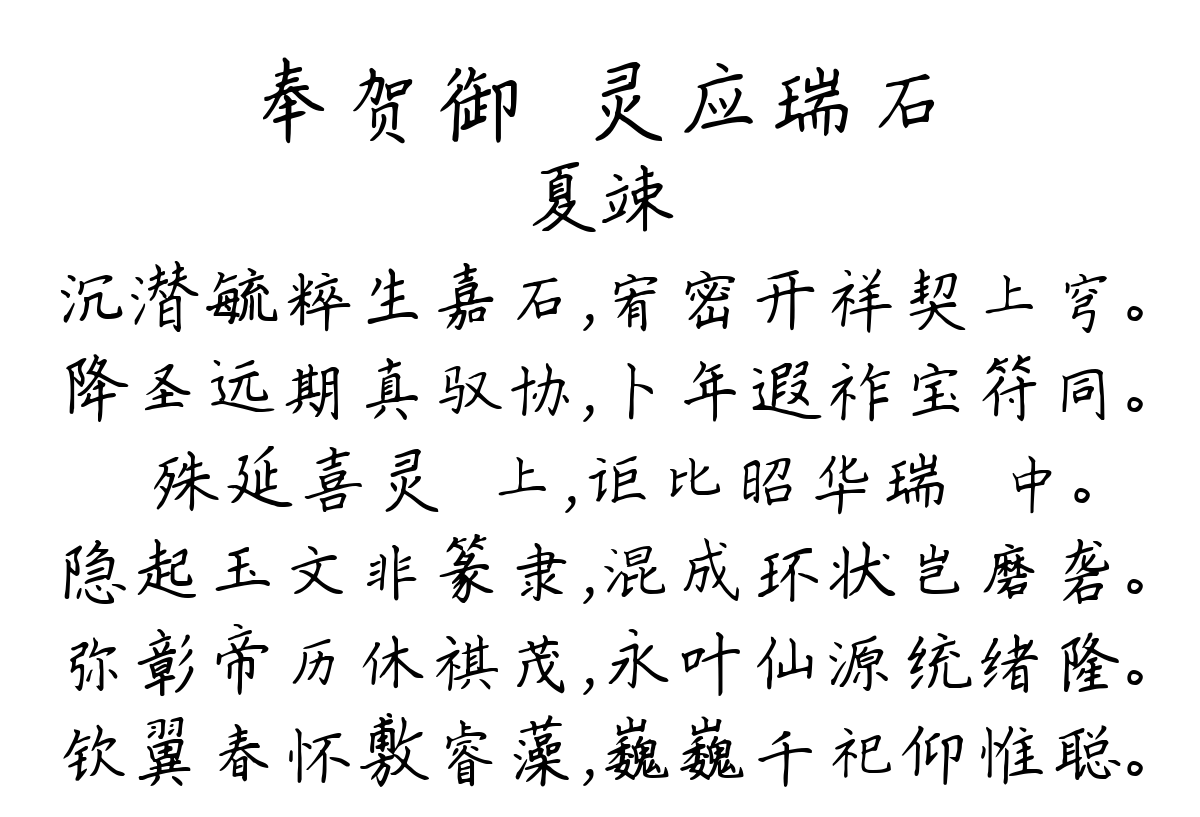 奉贺御 灵应瑞石
夏竦
沉潜毓粹生嘉石,宥密开祥契上穹。
降圣远期真驭协,卜年遐祚宝符同。
殊延喜灵 上,讵比昭华瑞 中。
隐起玉文非篆隶,混成环状岂磨砻。
弥彰帝历休祺茂,永叶仙源统绪隆。
钦翼春怀敷睿藻,巍巍千祀仰惟聪。